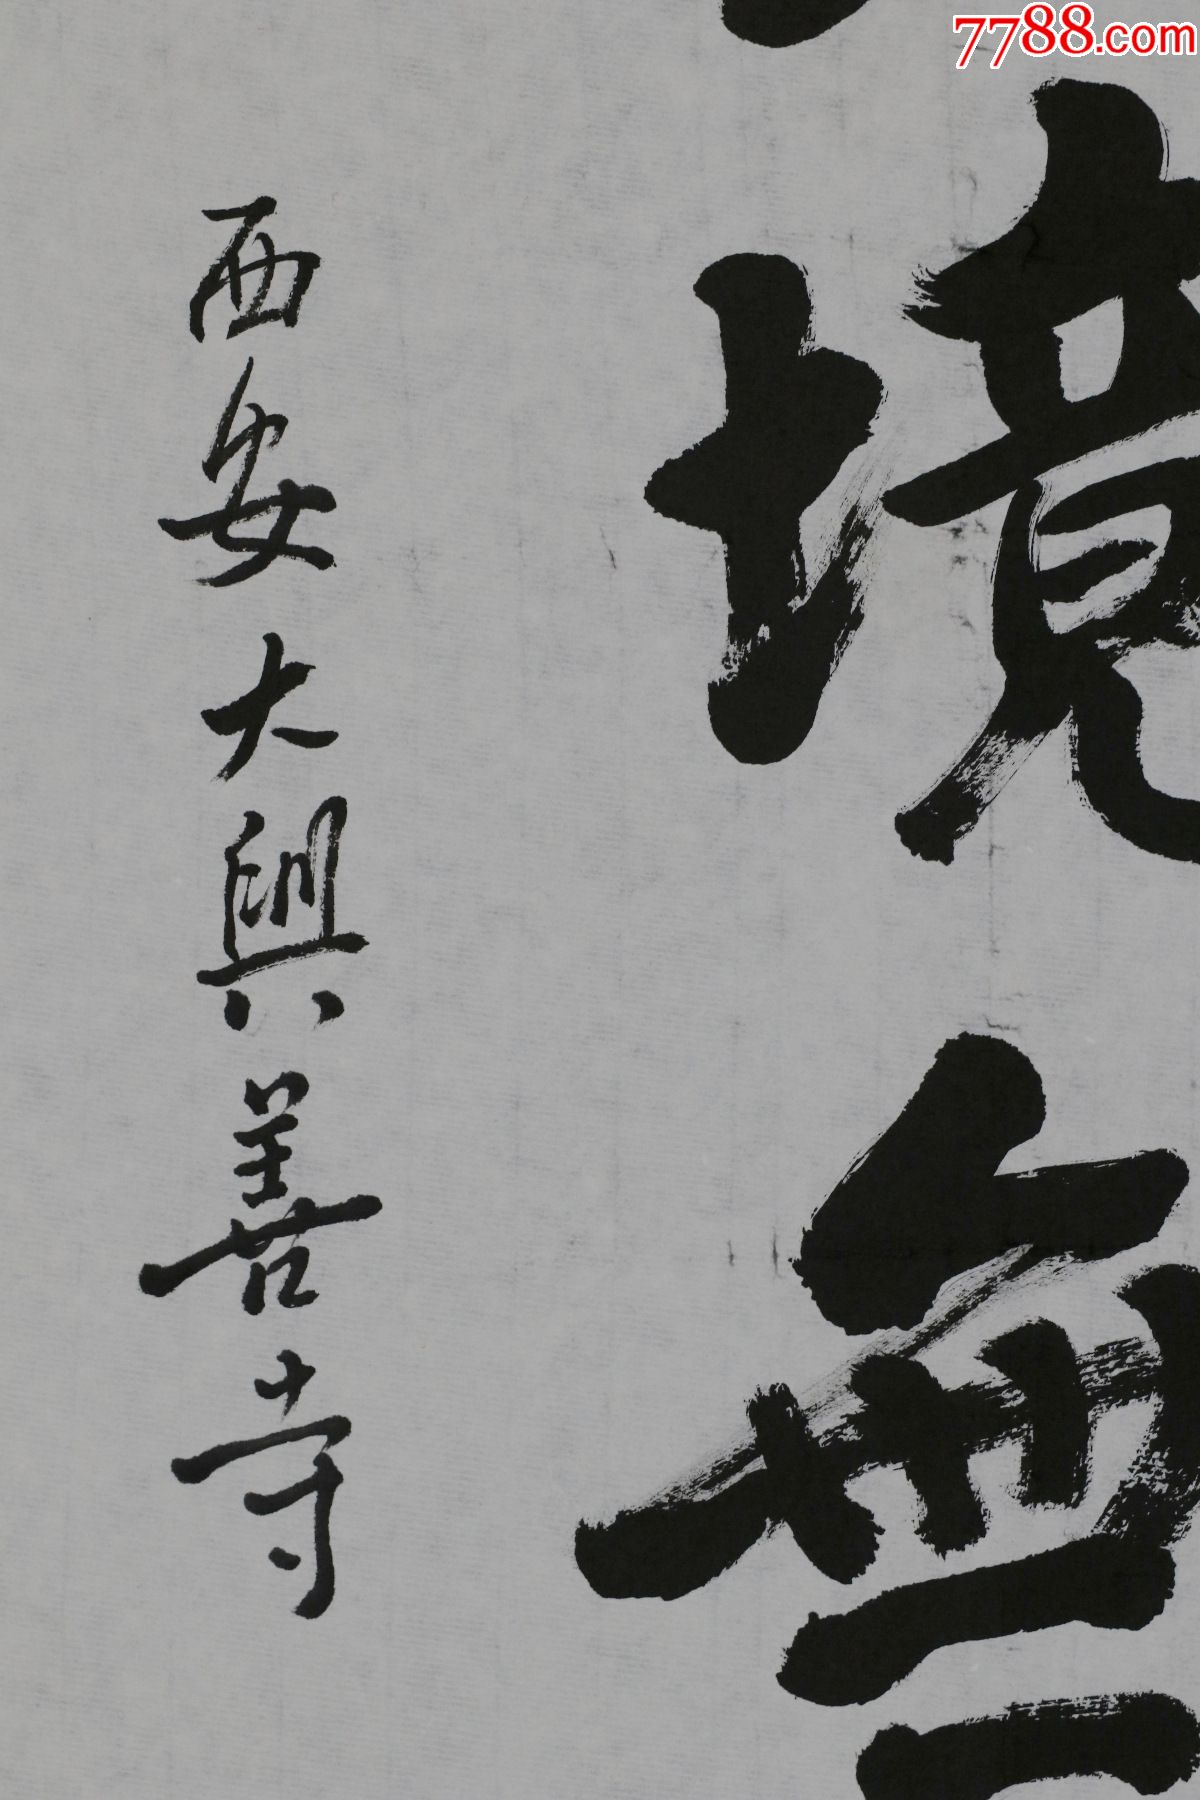 7788.com
境無
西安大興善寺